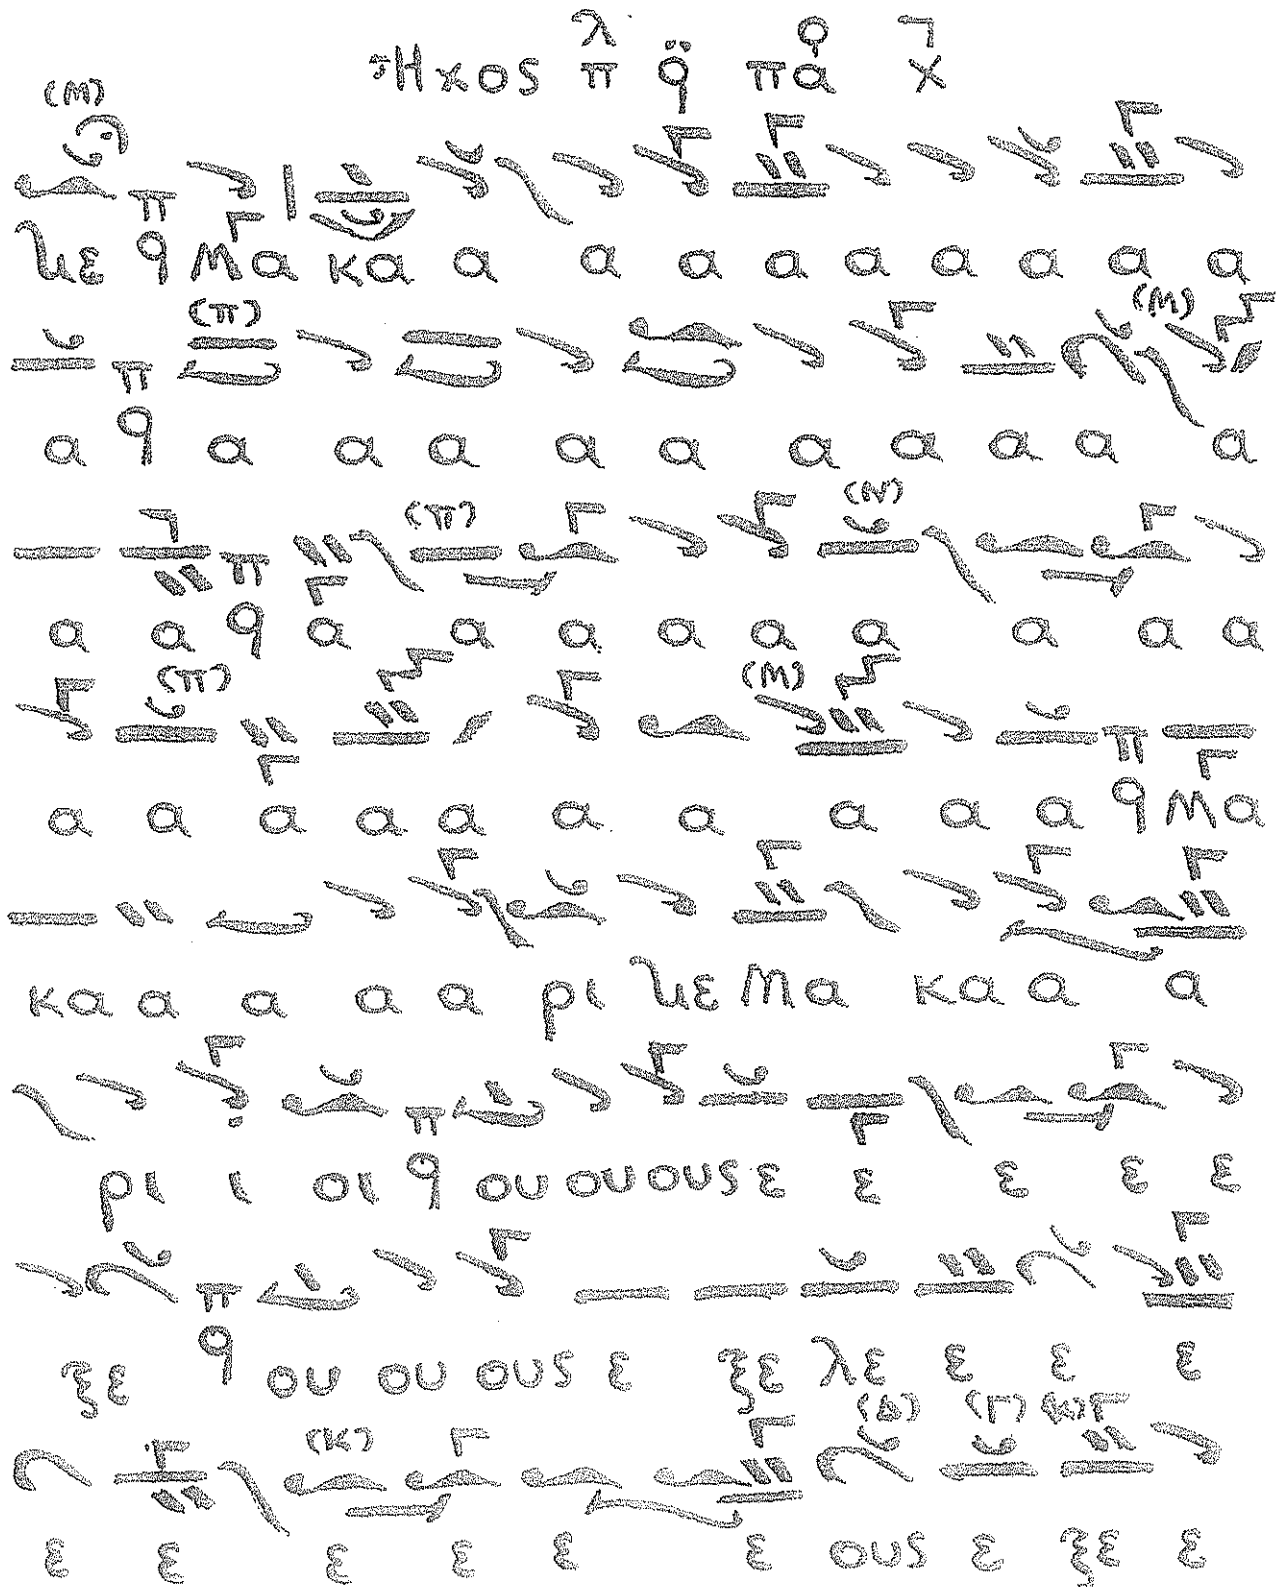 Ἦχος λ π q̈ πα χ
(Μ)
Με π q Μα κα α α α α α α α α
(π) (Μ)
α π q α α α α α α α α α α
(π) (Ν)
α α π q α α α α α α α α α
(π) (Μ)
α α α α α α α α α α π q Μα
κα α α α α ρι Με Μα κα α α
ρι ι οι π q ου ου ους ε ε ε ε ε
ξε π q ου ου ους ε ξε λε ε ε ε
(Κ) (Δ) (Γ) (Κ)
ε ε ε ε ε ε ους ε ξε ε